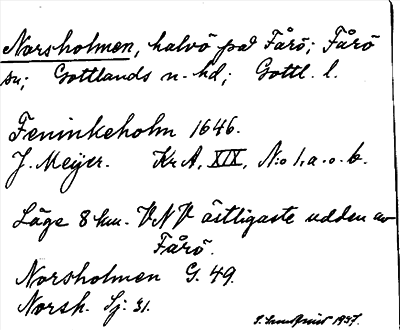 Norsholmen, halvö på Fårö; Fårö
sn; Gottlands n. hd; Gottl. l.
Feninkeholm 1646.
J. Meijer. Kr. A, XIX, N:o 1, a. o. b.
Läge 8 km. VNV östligaste udden av
Fårö.
Norsholmen G. 49.
Norsk. Sj: 31.
1937.